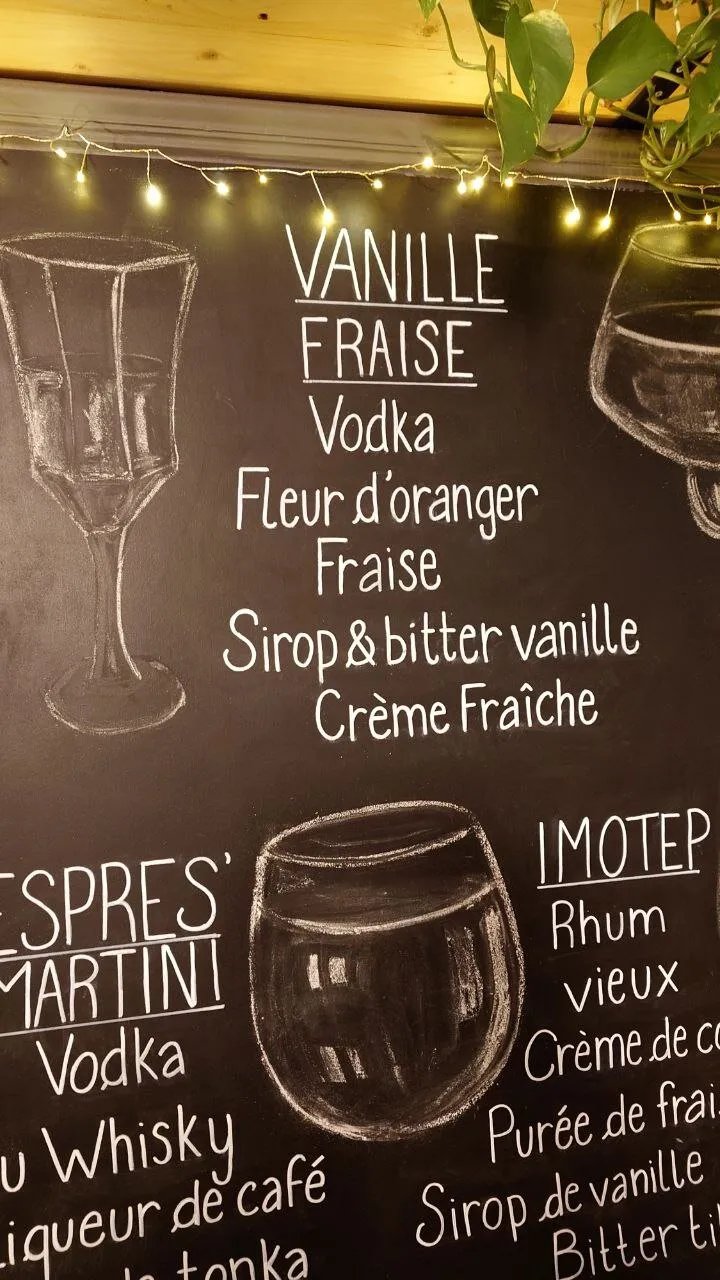 VANILLE
FRAISE
Vodka
Fleur d'oranger
Fraise
Sirop & bitter vanille
Crème Fraîche
ESPRES'
MARTINI
Vodka
Whisky
Liqueur de café
tonka
IMOTEP
Rhum
vieux
Crème de
Purée de
Sirop de vanille
Bitter